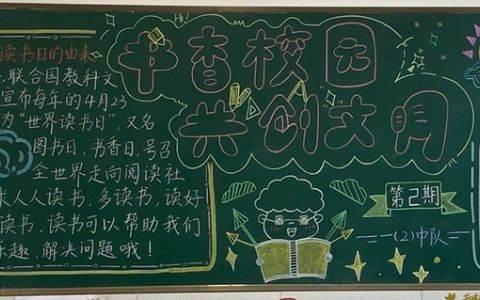 读书日的由来
联合国教科文
宣布每年的4月23
为“世界读书日”又名
图书日,书香日,号召
全世界走向阅读社
人人读书,多读书,读好
读书,读书可以帮助我们
乐趣,解决问题哦!
书香校园
共创文明
第2期
一(2)中队